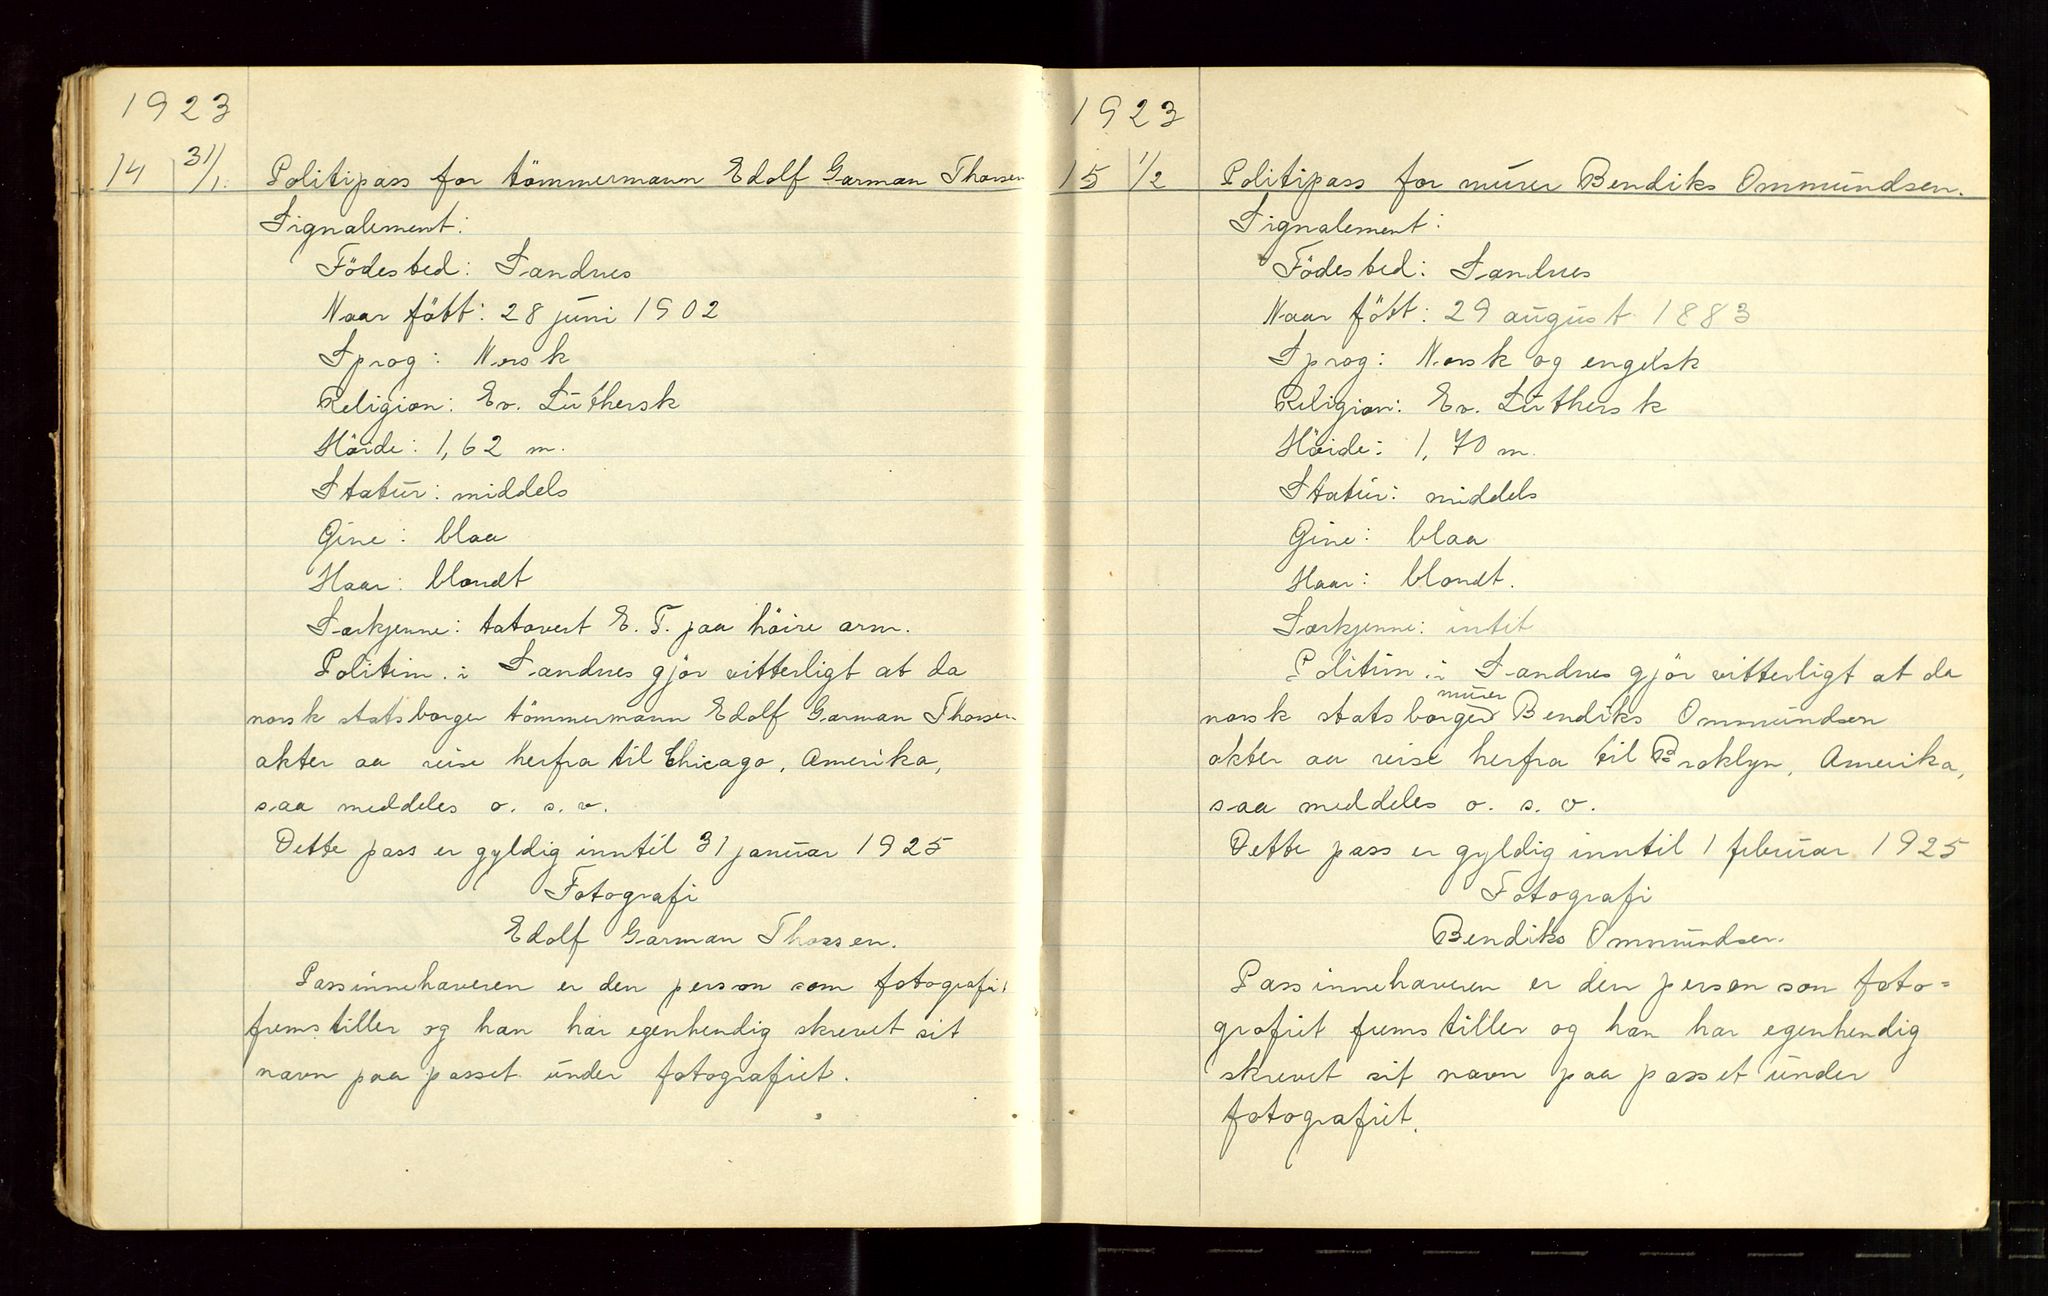 1923
14 31/1. Politipass for tömmermann Edolf Garman Thorsen
Signalement:
Födested: Sandnes
Naar fött: 28 juni 1902
Sprog: Norsk
Religion: Ev. Luthersk
Höide: 1,62 m.
Statur: middels
Öine: blaa
Haar: blondt
Særkjenne: tatovert E. T. paa höire arm.
Politim. i Sandnes gjör vitterligt at da
norsk statsborger tömmermann Edolf Garman Thorsen
akter aa reise herfra til Chicago, Amerika,
saa meddeles o. s. v.
Dette pass er gyldig inntil 31 januar 1925
Fotografi
Edolf Garman Thorsen.
Passinnehaveren er den person som fotografi,
fremstiller og han har egenhendig skrevet sit
navn paa passet under fotografiet.
1923
15 1/2 Politipass for murer Bendiks Ommundsen.
Signalement:
Födested: Sandnes
Naar fött: 29 august 1883
Sprog: Norsk og engelsk
Religion: Ev. Luthersk
Höide: 1,70 m.
Statur: middels
Öine: blaa
Haar: blondt.
Særkjenne: intet
Politim. i Sandnes gjör vitterligt at da
norsk statsborger murer Bendiks Ommundsen
akter aa reise herfra til Broklyn, Amerika,
saa meddeles o. s. v.
Dette pass er gyldig inntil 1 februar 1925
Fotografi
Bendiks Ommundsen.
Passinnehaveren er den person som foto=
grafiet fremstiller og han har egenhendig
skrevet sit navn paa passet under
fotografiet.